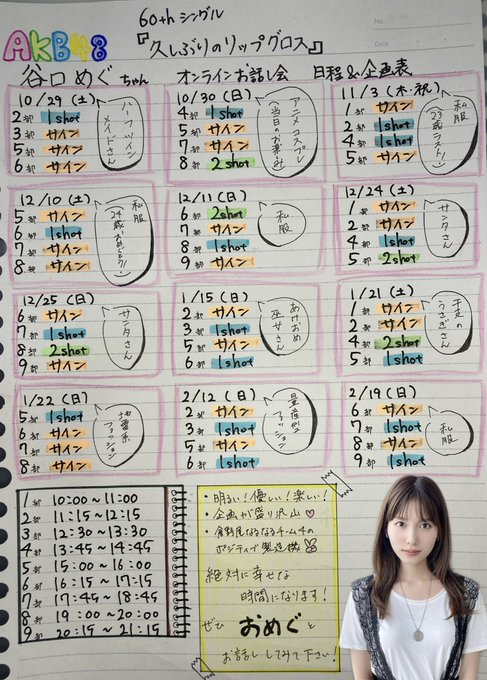 60th シングル
『久しぶりのリップグロス』
No.
Date
AKB48
谷口めぐちゃん オンラインお話し会 日程&企画表
10/29(土)
2部 1shot
3部 サイン
5部 サイン
6部 サイン
ハーフツイン
メイドさん
10/30(日)
4部 1shot
5部 サイン
7部 サイン
8部 2shot
アニメコスプレ
(当日のお楽しみ)
11/3(木・祝)
1部 サイン
2部 1shot
4部 1shot
5部 サイン
私服
(23歳ラスト!)
12/10(土)
5部 サイン
6部 1shot
7部 サイン
8部 サイン
私服
(24歳おめでとう!)
12/11(日)
6部 2shot
7部 サイン
8部 1shot
9部 サイン
私服
12/24(土)
1部 サイン
2部 サイン
4部 1shot
5部 2shot
サンタさん
12/25(日)
6部 サイン
7部 1shot
8部 2shot
9部 サイン
サンタさん
1/15(日)
2部 サイン
3部 1shot
5部 サイン
6部 サイン
あけおめ
巫女さん
1/21(土)
1部 サイン
2部 サイン
4部 2shot
5部 1shot
干支の
うさぎさん
1/22(日)
5部 1shot
6部 サイン
7部 サイン
8部 サイン
地雷系
ファッション
2/12(日)
2部 サイン
3部 1shot
5部 サイン
6部 1shot
量産型
ファッション
2/19(日)
6部 サイン
7部 1shot
8部 サイン
9部 1shot
私服
1部 10:00〜11:00
2部 11:15〜12:15
3部 12:30〜13:30
4部 13:45〜14:45
5部 15:00〜16:00
6部 16:15〜17:15
7部 17:45〜18:45
8部 19:00〜20:00
9部 20:15〜21:15
・明るい!優しい!楽しい!
・企画が盛り沢山♡
・食野民なるなるチーム4の
ポジティブ製造機
絶対に幸せな
時間になります!
ぜひ おめぐと
お話ししてみて下さい!